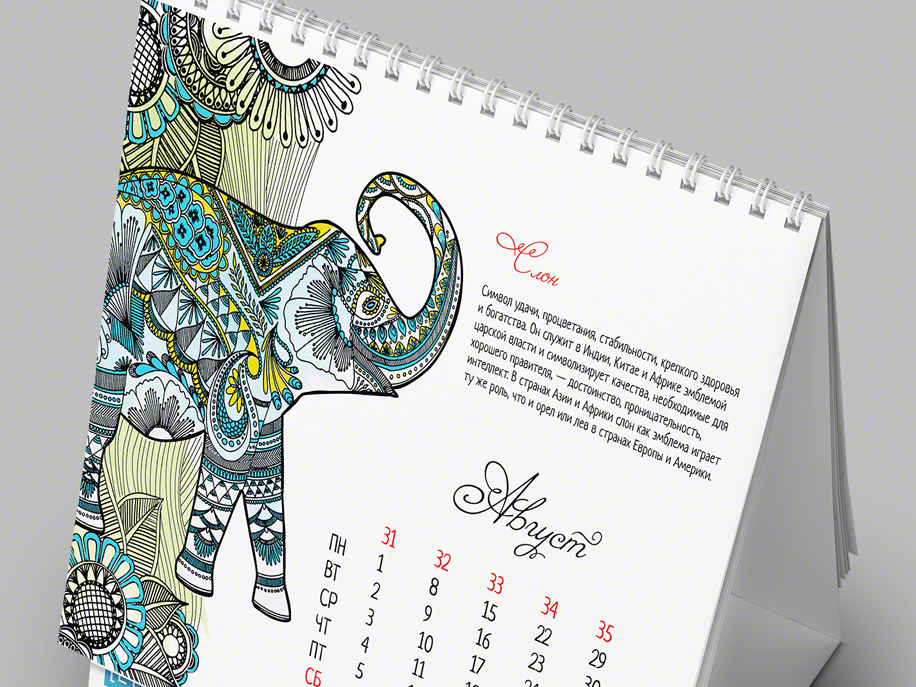 Слон
Символ удачи, процветания, стабильности, крепкого здоровья
и богатства. Он служит в Индии, Китае и Африке эмблемой
царской власти и символизирует качества, необходимые для
хорошего правителя, — достоинство, проницательность,
интеллект. В странах Азии и Африки слон как эмблема играет
ту же роль, что и орел или лев в странах Европы и Америки.
Август
31 32 33 34 35
ПН 1 8 15 22 29
ВТ 2 9 16 23 30
СР 3 10 17
ЧТ 4 11
ПТ 5
СБ